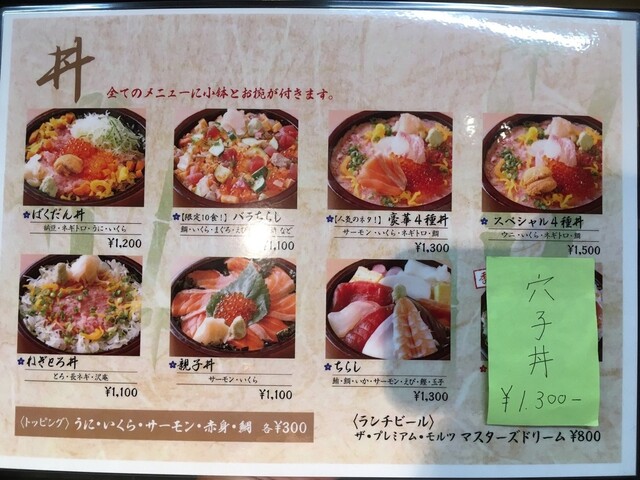 丼
全てのメニューに小鉢とお椀が付きます。
ばくだん丼
納豆・ネギトロ・うに・いくら
¥1,200
【限定10食!】バラちらし
鯛・いくら・まぐろ・えび など
¥1,100
【人気のネタ!】豪華4種丼
サーモン・いくら・ネギトロ・鯛
¥1,300
スペシャル4種丼
ウニ・いくら・ネギトロ・鯛
¥1,500
ねぎとろ丼
とろ・長ネギ・沢庵
¥1,100
親子丼
サーモン・いくら
¥1,100
ちらし
鮪・鯛・いか・サーモン・えび・鰹・玉子
¥1,300
穴子丼
¥1.300-
〈トッピング〉うに・いくら・サーモン・赤身・鯛 各¥300
〈ランチビール〉
ザ・プレミアム・モルツ マスターズドリーム ¥800